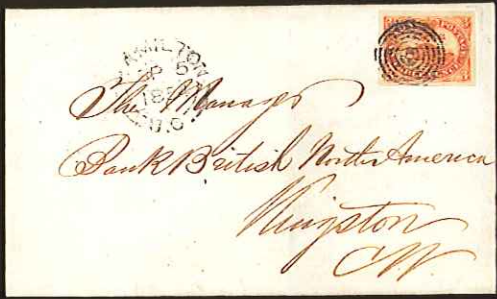 HAMILTON
5
18
U.C.
POSTAGE
The Manager
Bank British North America
Kingston
CW.